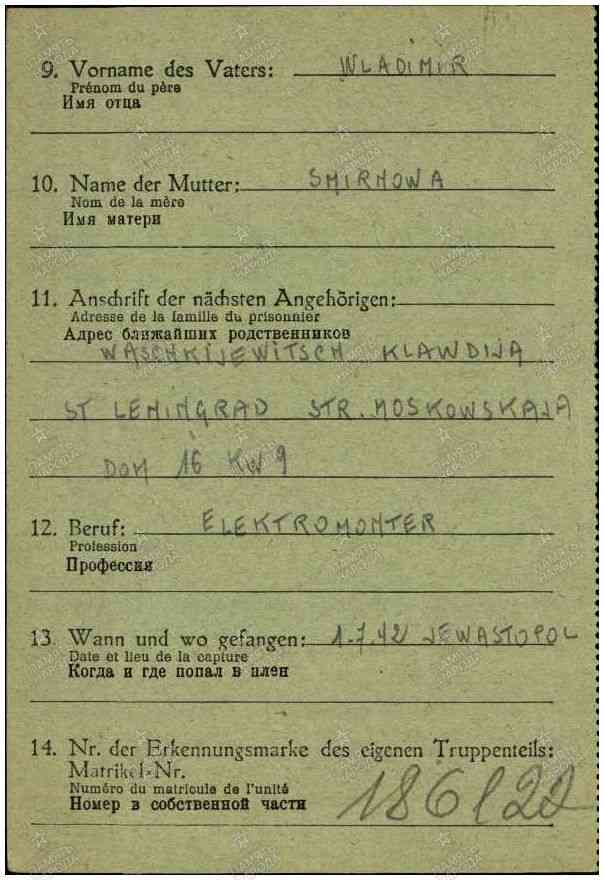 9. Vorname des Vaters: WLADIMIR
Prénom du père
Имя отца
10. Name der Mutter: SMIRNOWA
Nom de la mère
Имя матери
11. Anschrift der nächsten Angehörigen:
Adresse de la famille du prisonnier
Адрес ближайших родственников
WASCHKIJEWITSCH KLAWDIJA
ST LENINGRAD STR. MOSKOWSKAJA
DOM 16 KW 9
12. Beruf: ELEKTROMONTER
Profession
Профессия
13. Wann und wo gefangen: 1.7.42 SEWASTOPOL
Date et lieu de la capture
Когда и где попал в плен
14. Nr. der Erkennungsmarke des eigenen Truppenteils:
Matrikel-Nr.
Numéro du matricule de l'unité
Номер в собственной части